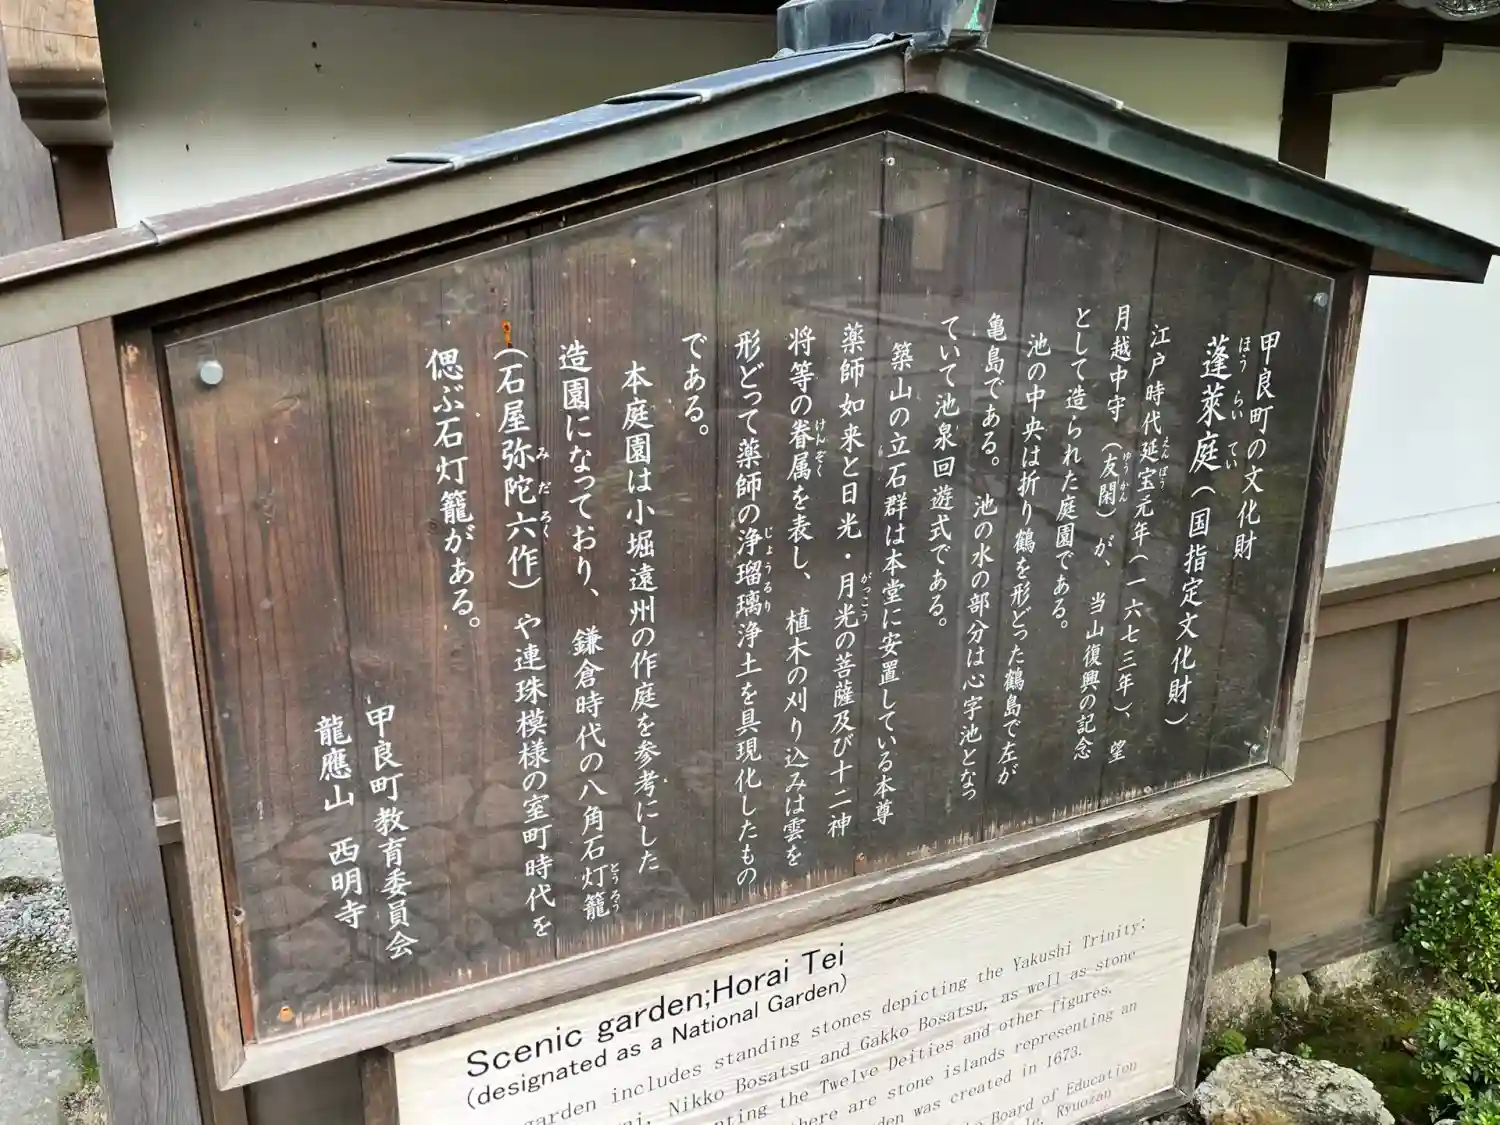 甲良町の文化財
蓬萊庭（国指定文化財）
ほう らい てい
江戸時代延宝元年（一六七三年）、望
えんぽう
月越中守（友閑）が、当山復興の記念
ゆうかん
として造られた庭園である。
池の中央は折り鶴を形どった鶴島で左が
亀島である。池の水の部分は心字池となっ
ていて池泉回遊式である。
築山の立石群は本堂に安置している本尊
薬師如来と日光・月光の菩薩及び十二神
がっこう
将等の眷属を表し、植木の刈り込みは雲を
けんぞく
形どって薬師の浄瑠璃浄土を具現化したもの
じょうるり
である。
本庭園は小堀遠州の作庭を参考にした
造園になっており、鎌倉時代の八角石灯籠
とうろう
（石屋弥陀六作）や連珠模様の室町時代を
みだろく
偲ぶ石灯籠がある。
甲良町教育委員会
龍應山 西明寺
Scenic garden;Horai Tei
(designated as a National Garden)
garden includes standing stones depicting the Yakushi Trinity;
Nikko Bosatsu and Gakko Bosatsu, as well as stone
the Twelve Deities and other figures.
there are stone islands representing an
was created in 1673.
Board of Education
Ryuozan